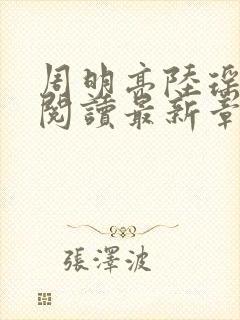 周明高陸深
閱讀最新章
張澤波